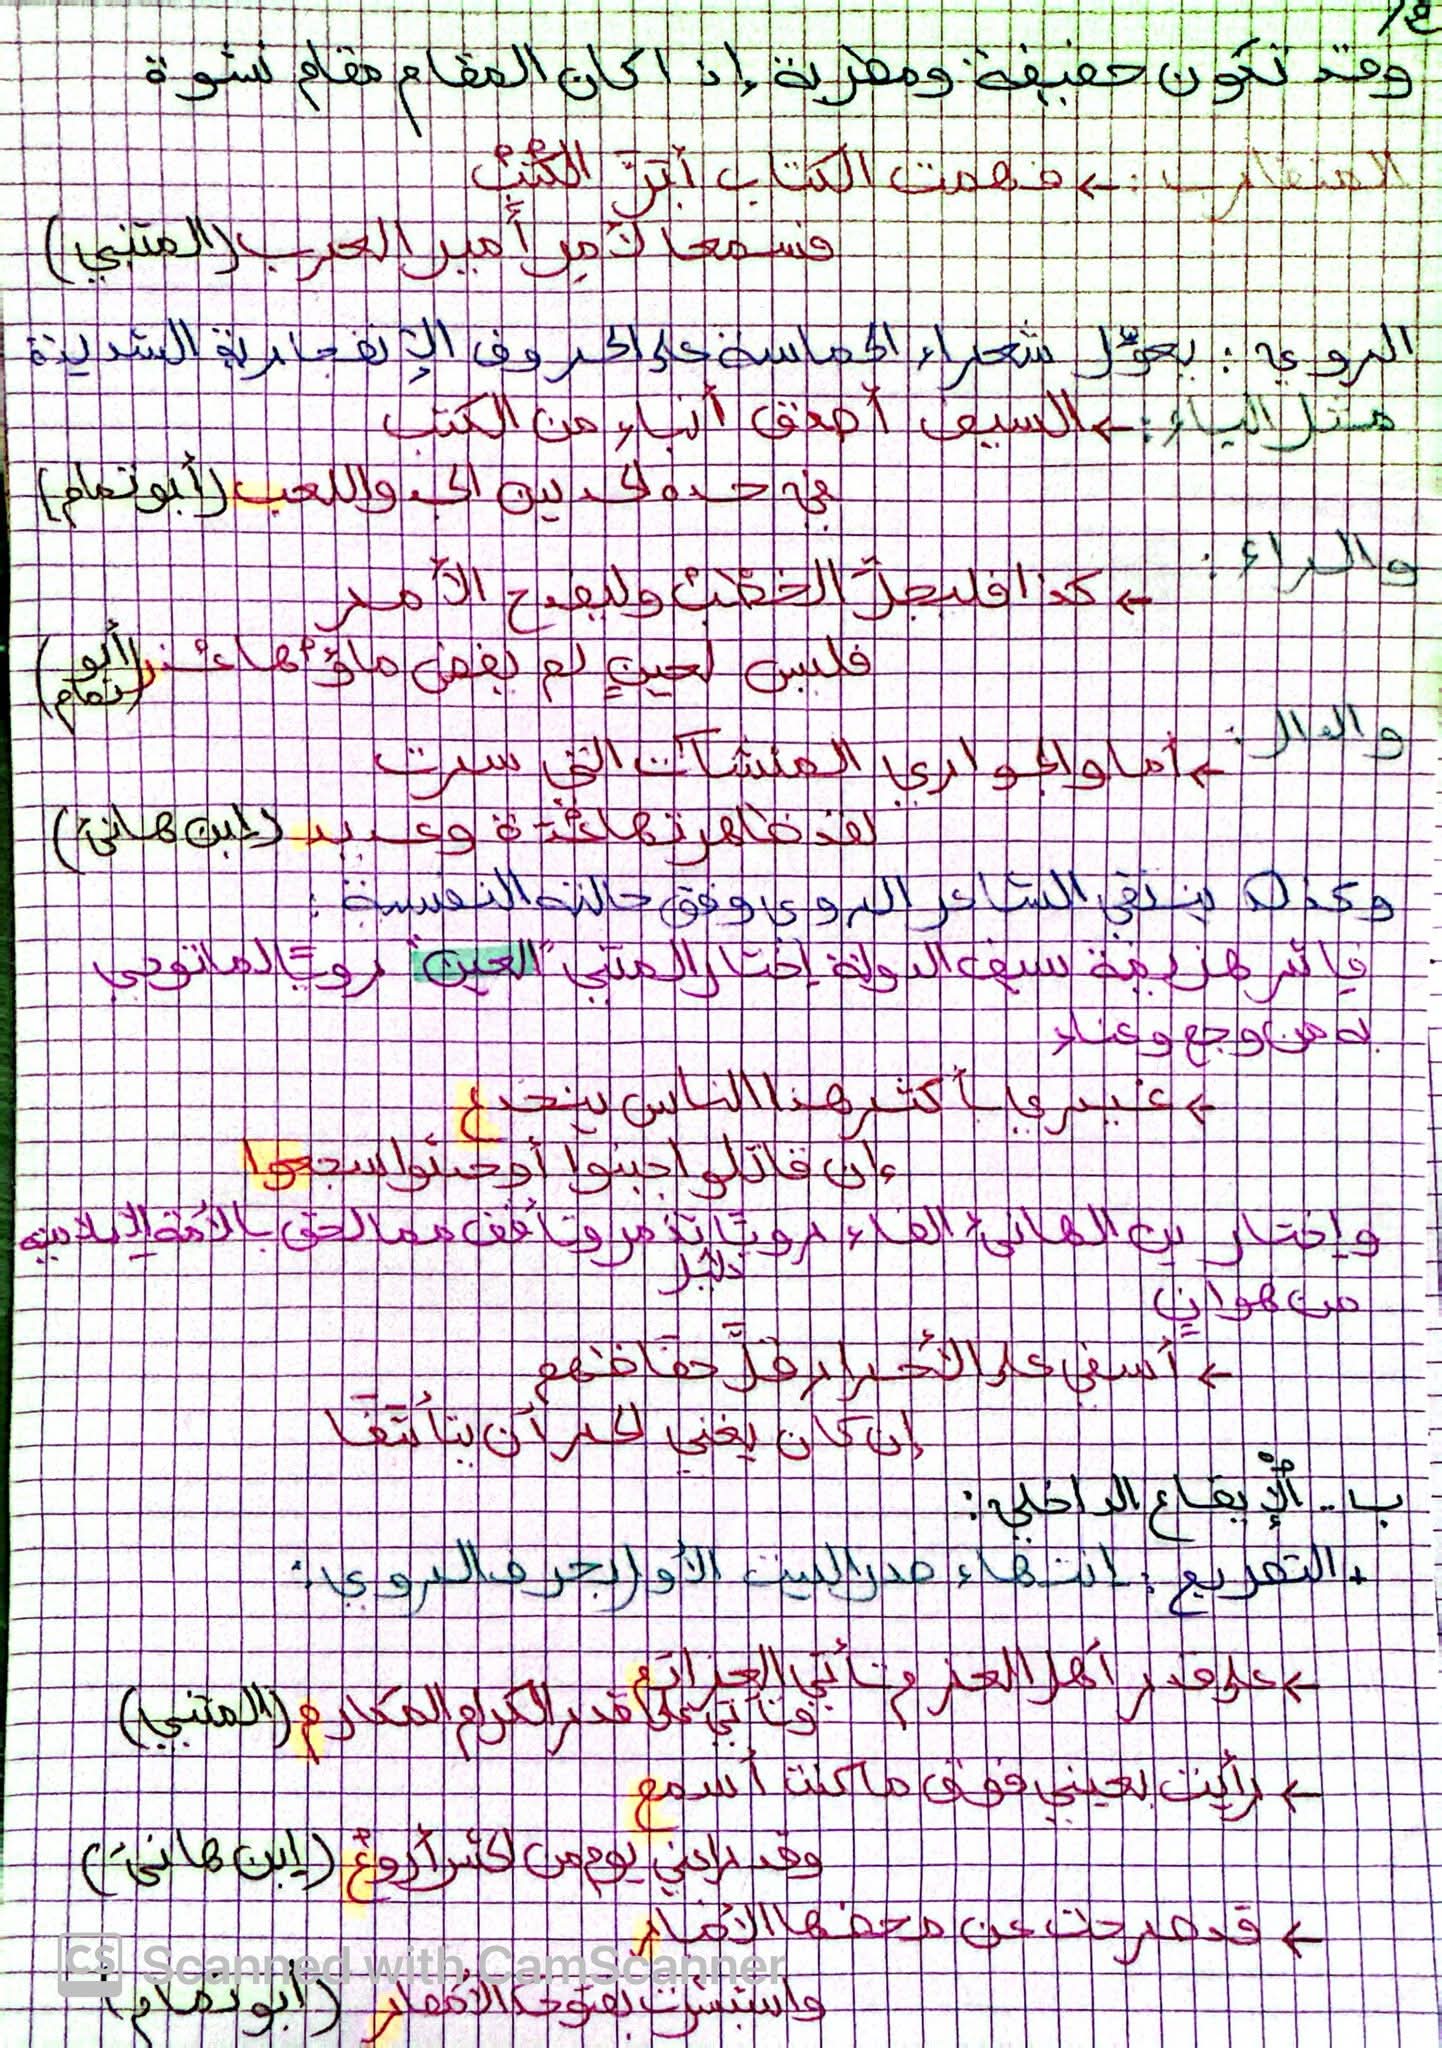 وقد تكون خفيفة ومطربة إذا كان المقام مقام نشوة
المتقارب: ← فهمت الكتاب أبَرَّ الكُتُبْ
فسمعا لأمرِ أمير العرب (المتنبي)
الروي: يعوّل شعراء الحماسة على الحروف الإنفجارية الشديدة
مثل الباء: ← السيف أصدق أنباء من الكتب
في حده الحد بين الجد واللعب (أبو تمام)
والراء:
← كذا فليجلَّ الخطْبُ وليفدح الأمر
فليس لعينٍ لم يفض ماؤها عذر (أبو تمام)
والدال:
← أما والجواري المنشآت التي سرت
لقد ظاهرتها عُدّة وعديد (إبن هانئ)
وكذلك ينتقي الشاعر الروي وفق حالته النفسية:
فإثر هزيمة سيف الدولة إختار المتنبي "العين" رويًّا لما توحي
به من وجع وعناء
← غيري بأكثر هذا الناس ينخدع
إن قاتلوا جبنوا أو حدثوا شجعوا
وإختار بن الهانئ الفاء رويًّا تذمر وتأفف مما لحق بالأمة الإسلامية
دليل
من هوانٍ
← أسفي على الأحرار قلَّ حفاظهم
إن كان يغني الحر أن يتأسّفا
ب - الإيقاع الداخلي:
+ التصريع: انتهاء صدر البيت الأول بحرف الروي:
← على قدر أهل العزم تأتي العزائم
وتأتي على قدر الكرام المكارم (المتنبي)
← رأيت بعيني فوق ما كنت أسمع
وقد راعني يوم من الحشر أروعُ (إبن هانئ)
← قد صرحت عن محضها الأخبار
واستبشرت بفتوحك الأمصار (أبو تمام)
CS Scanned with CamScanner